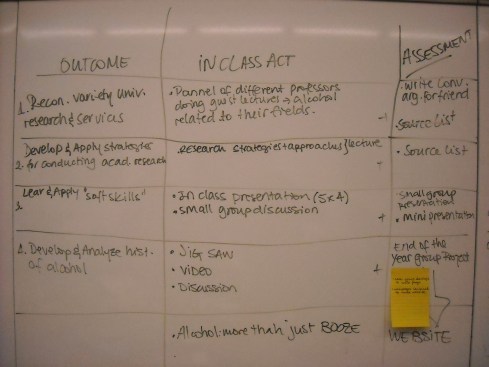 OUTCOME
IN CLASS ACT
ASSESSMENT
1. Recon. variety univ.
research & services
• Pannel of different professors
doing guest lectures → alcohol
related to their fields.
• Write conv.
arg. for friend
• Source List
Develop & Apply strategies
2. for conducting acad research
• research strategies + approaches } lecture
• Source List
Lear & Apply "soft skills"
• In class presentation (5x4)
• small group discussion
small group
presentation
• mini presentation
2. Develop & Analyze hist.
of alcohol
• JIG SAW
• Video
• Discussion
End of the
Year group Project
• Alcohol: more than just BOOZE
WEBSITE